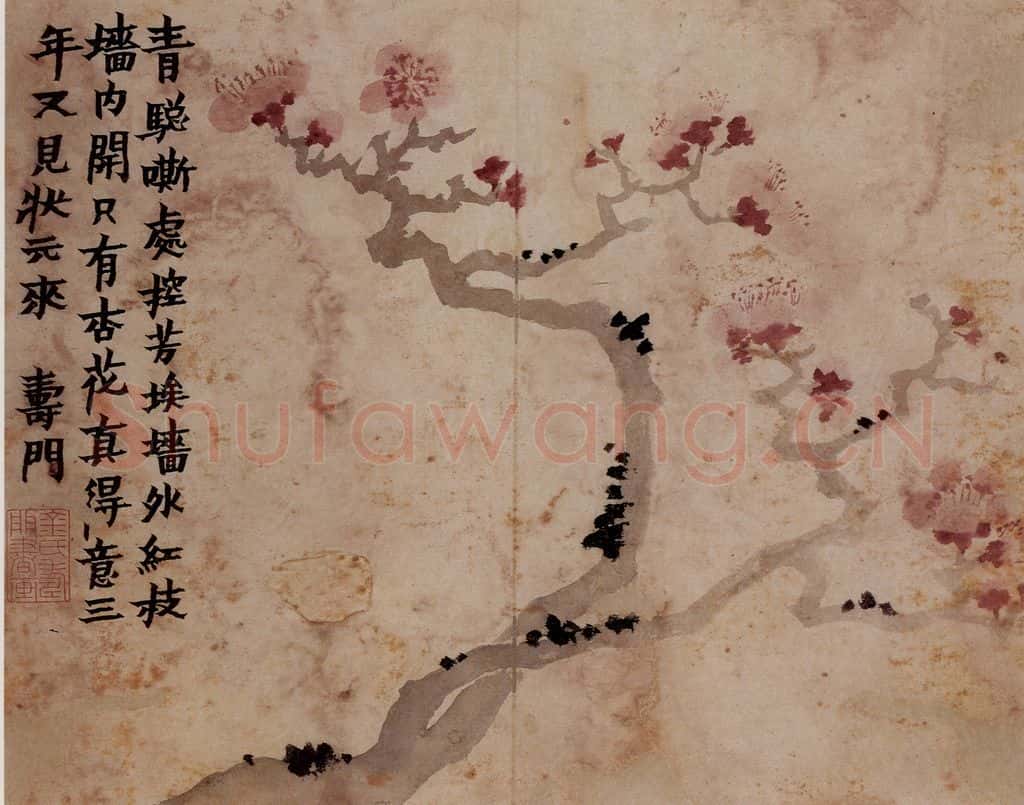 青驄嘶處控芳埃墻外紅枝
墻内開只有杏花真得意三
年又見狀元來 壽門
金氏壽
門書畫
Shufawang.CN